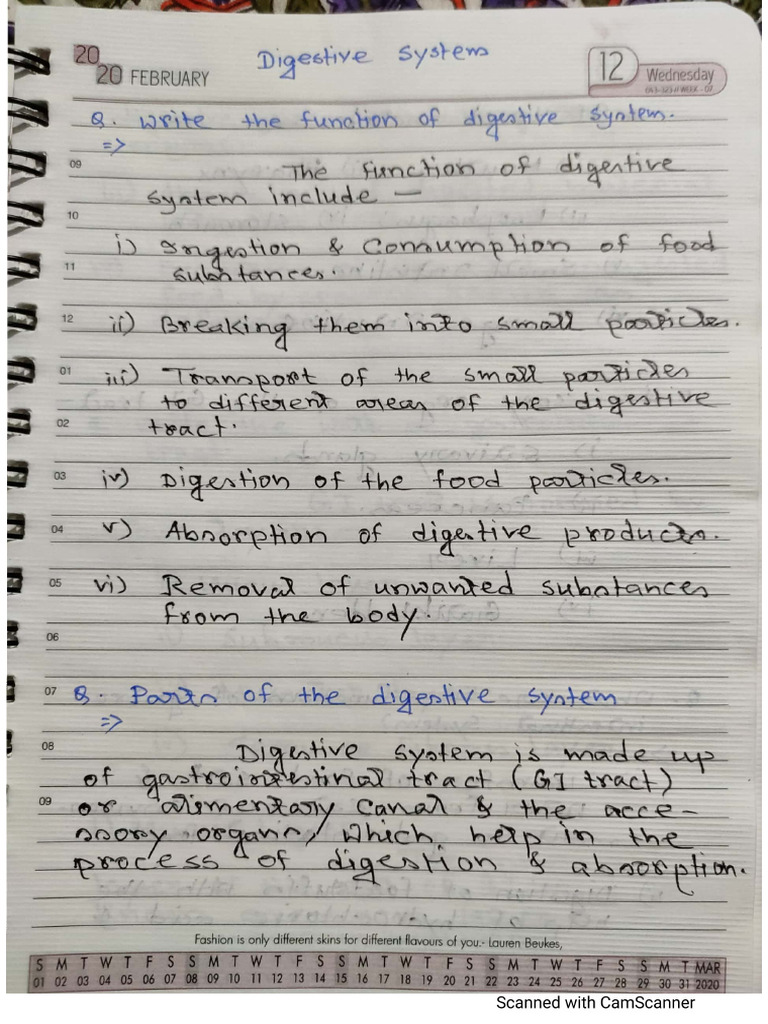 2020 FEBRUARY
Digestive System
12 Wednesday
Q. Write the function of digestive system.
=>
09 The function of digestive
system include —
10
i) Ingestion & Consumption of food
11 substances.
12 ii) Breaking them into small particles.
01 iii) Transport of the small particles
to different areas of the digestive
02 tract.
03 iv) Digestion of the food particles.
04 v) Absorption of digestive products.
05 vi) Removal of unwanted substances
from the body.
06
07 Q. Parts of the digestive system
=>
08 Digestive system is made up
of gastrointestinal tract (GI tract)
09 or alimentary canal & the acce-
ssory organs, which help in the
process of digestion & absorption.
Fashion is only different skins for different flavours of you.- Lauren Beukes,
S M T W T F S S M T W T F S S M T W T F S S M T W T F S S M T MAR
01 02 03 04 05 06 07 08 09 10 11 12 13 14 15 16 17 18 19 20 21 22 23 24 25 26 27 28 29 30 31 2020
Scanned with CamScanner